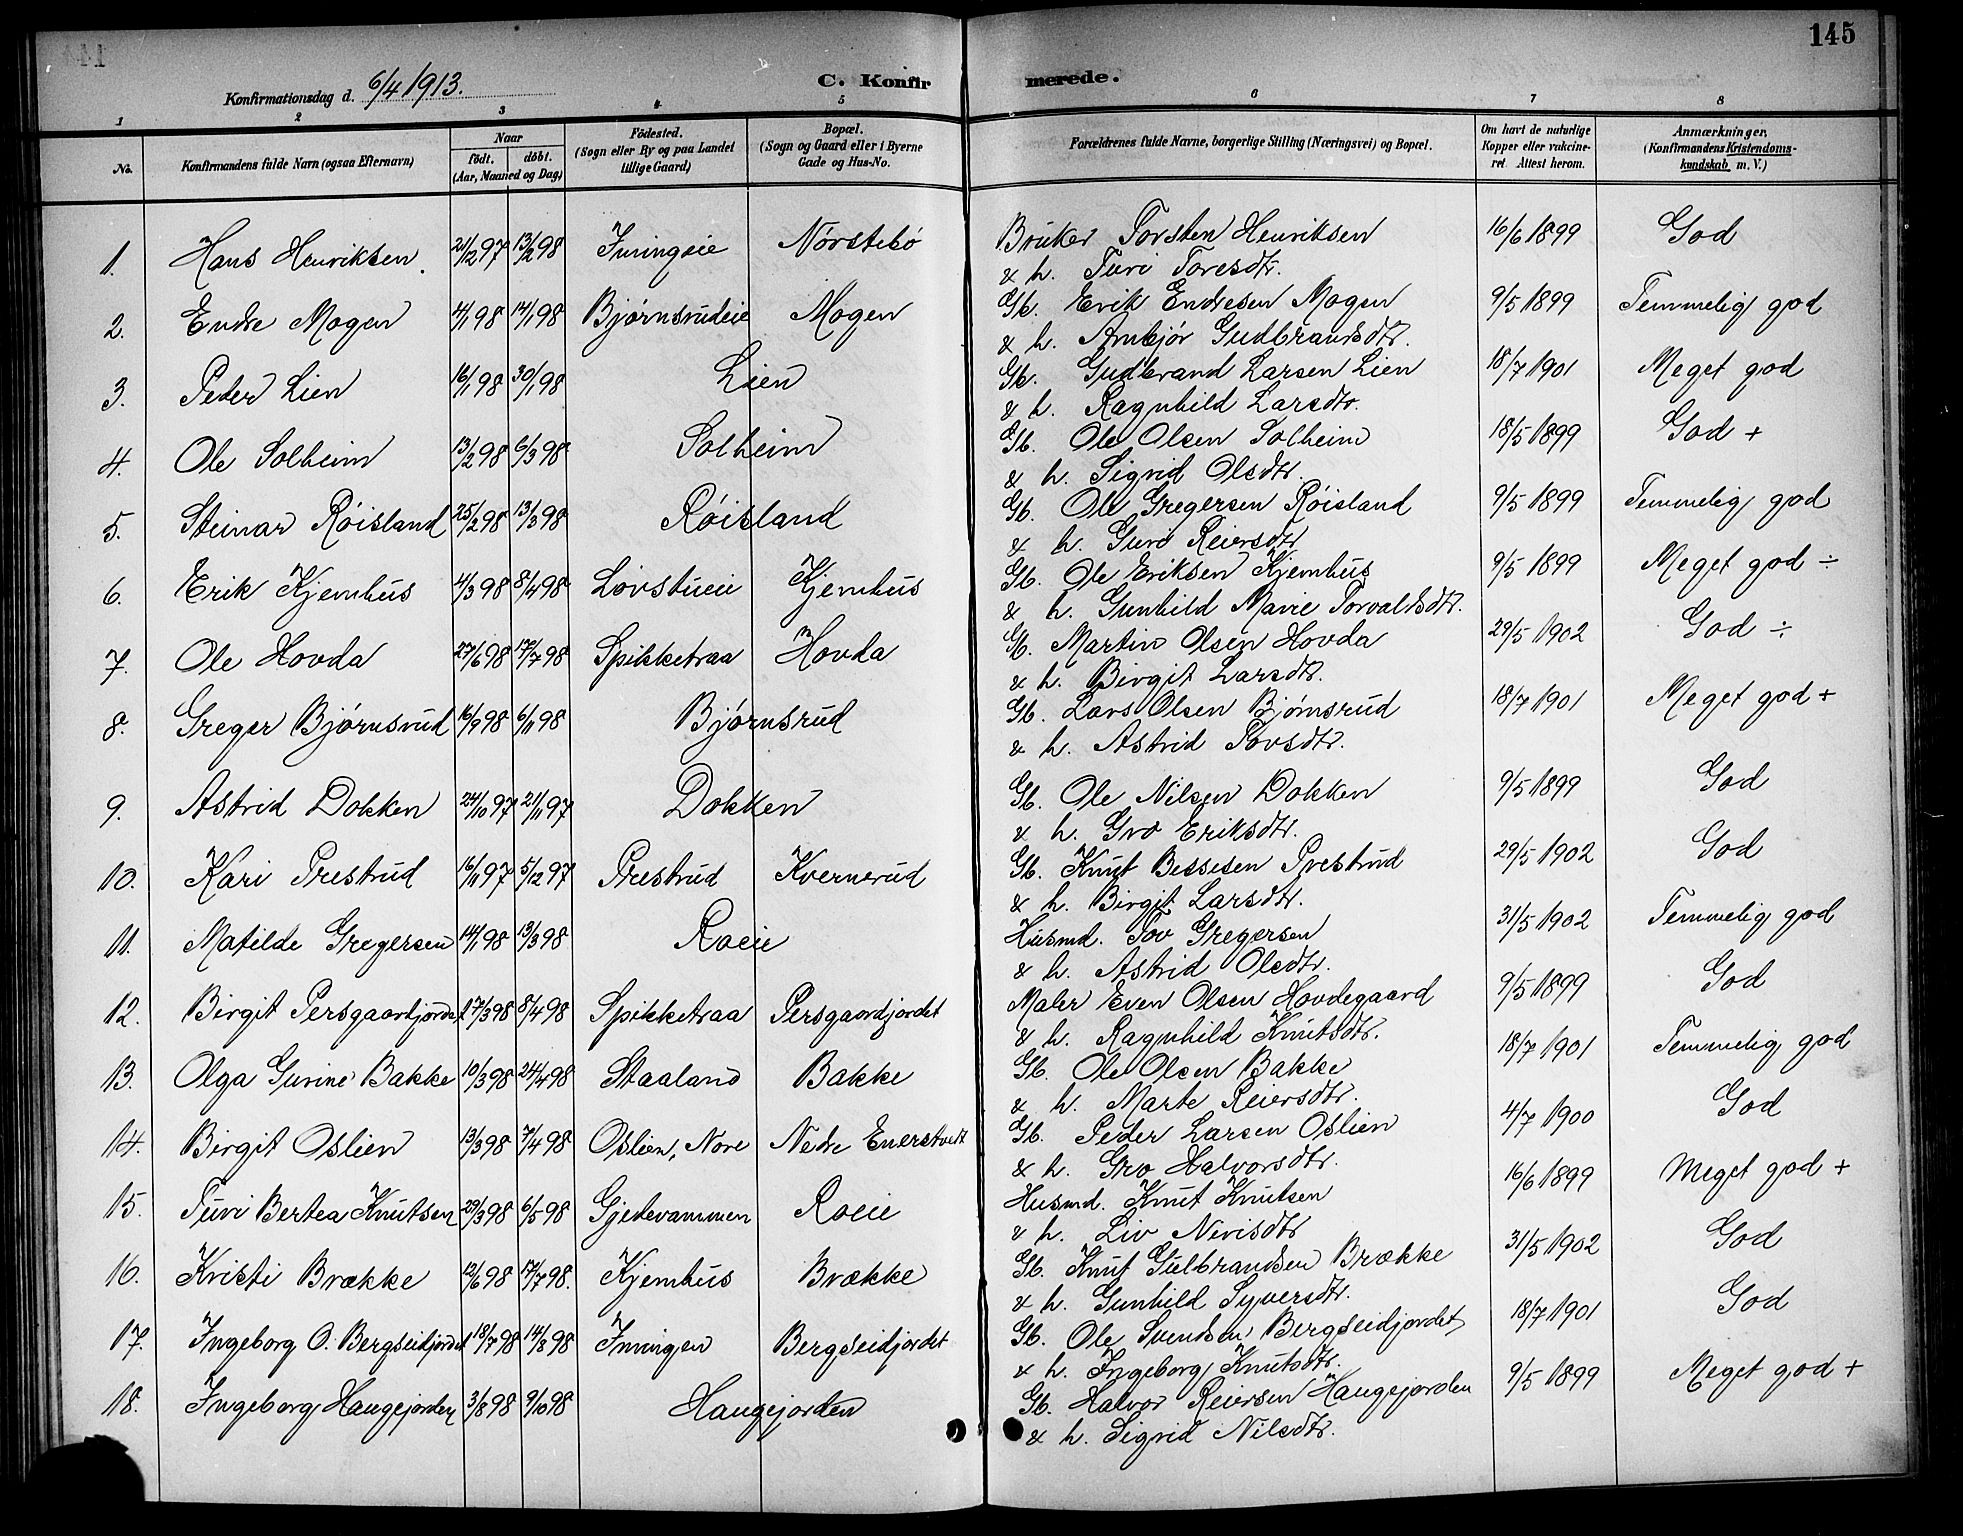 145
Konfirmationsdag d. 6/4 1913.
C. Konfirmerede.
1 2 3 4 5 6 7 8
No. Konfirmandens fulde Navn (ogsaa Efternavn) Naar født. døbt. (Aar, Maaned og Dag) Fødested. (Sogn eller By og paa Landet tillige Gaard) Bopæl. (Sogn og Gaard eller i Byerne Gade og Hus-No. Forældrenes fulde Navne, borgerlige Stilling (Næringsvei) og Bopæl. Om havt de naturlige Kopper eller vakcineret. Attest herom. Anmærkninger. (Konfirmandens Kristendomskundskab m. V.)
1. Hans Henriksen 21/12 97 13/2 98 Inningeie Nørstebø Bruker Torsten Henriksen 16/6 1899 God
& h. Turi Toresdtr.
2. Endre Mogen 4/1 98 14/1 98 Bjørnsrudeie Mogen Gb. Erik Endresen Mogen 9/5 1899 Temmelig god
& h. Ambjør Gudbrandsdtr.
3. Peder Lien 16/1 98 30/1 98 Lien Gb. Gudbrand Larsen Lien 18/7 1901 Meget god
& h. Ragnhild Larsdtr.
4. Ole Solheim 13/2 98 6/3 98 Solheim Gb. Ole Olsen Solheim 18/5 1899 God +
& h. Sigrid Olsdtr.
5. Steinar Røisland 25/2 98 13/3 98 Røisland Gb. Ole Gregersen Røisland 9/5 1899 Temmelig god
& h. Guri Reiersdtr
6. Erik Kjemhus 4/3 98 8/4 98 Løvstueie Kjemhus Gb. Ole Eriksen Kjemhus 9/5 1899 Meget god ÷
& h. Gunhild Marie Torvaldsdtr.
7. Ole Hovda 27/6 98 17/7 98 Spikketraa Hovda Gb. Martin Olsen Hovda 29/5 1902 God ÷
& h. Birgit Larsdtr.
8. Greger Bjørnsrud 16/9 98 6/11 98 Bjørnsrud Gb. Lars Olsen Bjørnsrud 18/7 1901 Meget god +
& h. Astrid Tovsdtr.
9. Astrid Dokken 24/10 97 21/11 97 Dokken Gb. Ole Nilsen Dokken 9/5 1899 God
& h. Gro Eriksdtr.
10. Kari Prestrud 16/11 97 5/12 97 Prestrud Kvernerud Gb. Knut Bessesen Prestrud 29/5 1902 God
& h. Birgit Larsdtr.
11. Matilde Gregersen 14/1 98 13/3 98 Roeie Husmd. Tov Gregersen 31/5 1902 Temmelig god
& h. Astrid Olsdtr.
12. Birgit Persgaardjordet 17/3 98 8/4 98 Spikketraa Persgaardjordet Maler Even Olsen Hovdegaard 9/5 1899 God
& h. Ragnhild Knutsdtr.
13. Olga Gurine Bakke 10/3 98 24/4 98 Staaland Bakke Gb. Ole Olsen Bakke 18/7 1901 Temmelig god
& h. Marte Reiersdtr.
14. Birgit Oslien 13/3 98 7/4 98 Oslien, Nore Nedre Enerstvedt Gb. Peder Larsen Oslien 4/7 1900 God
& h. Gro Halvorsdtr.
15. Turi Bertea Knutsen 29/3 98 6/5 98 Gjetevammen Roeie Husmd. Knut Knutsen 16/6 1899 Meget god +
& h. Liv Nirisdtr
16. Kristi Brække 12/6 98 17/7 98. Kjemhus Brække Gb. Knut Gulbrandsen Brække 31/5 1902 God
& h. Gunhild Syversdtr.
17. Ingeborg O. Bergseidjordet 18/7 98 14/8 98 Inningen Bergseidjordet Gb. Ole Svendsen Bergseidjordet 18/7 1901 God
& h. Ingeborg Knutsdtr.
18. Ingeborg Haugejorden 3/8 98 9/10 98 Haugejorden Gb. Halvor Reiersen Haugejorden 9/5 1899 Meget god +
& h. Sigrid Nilsdtr.